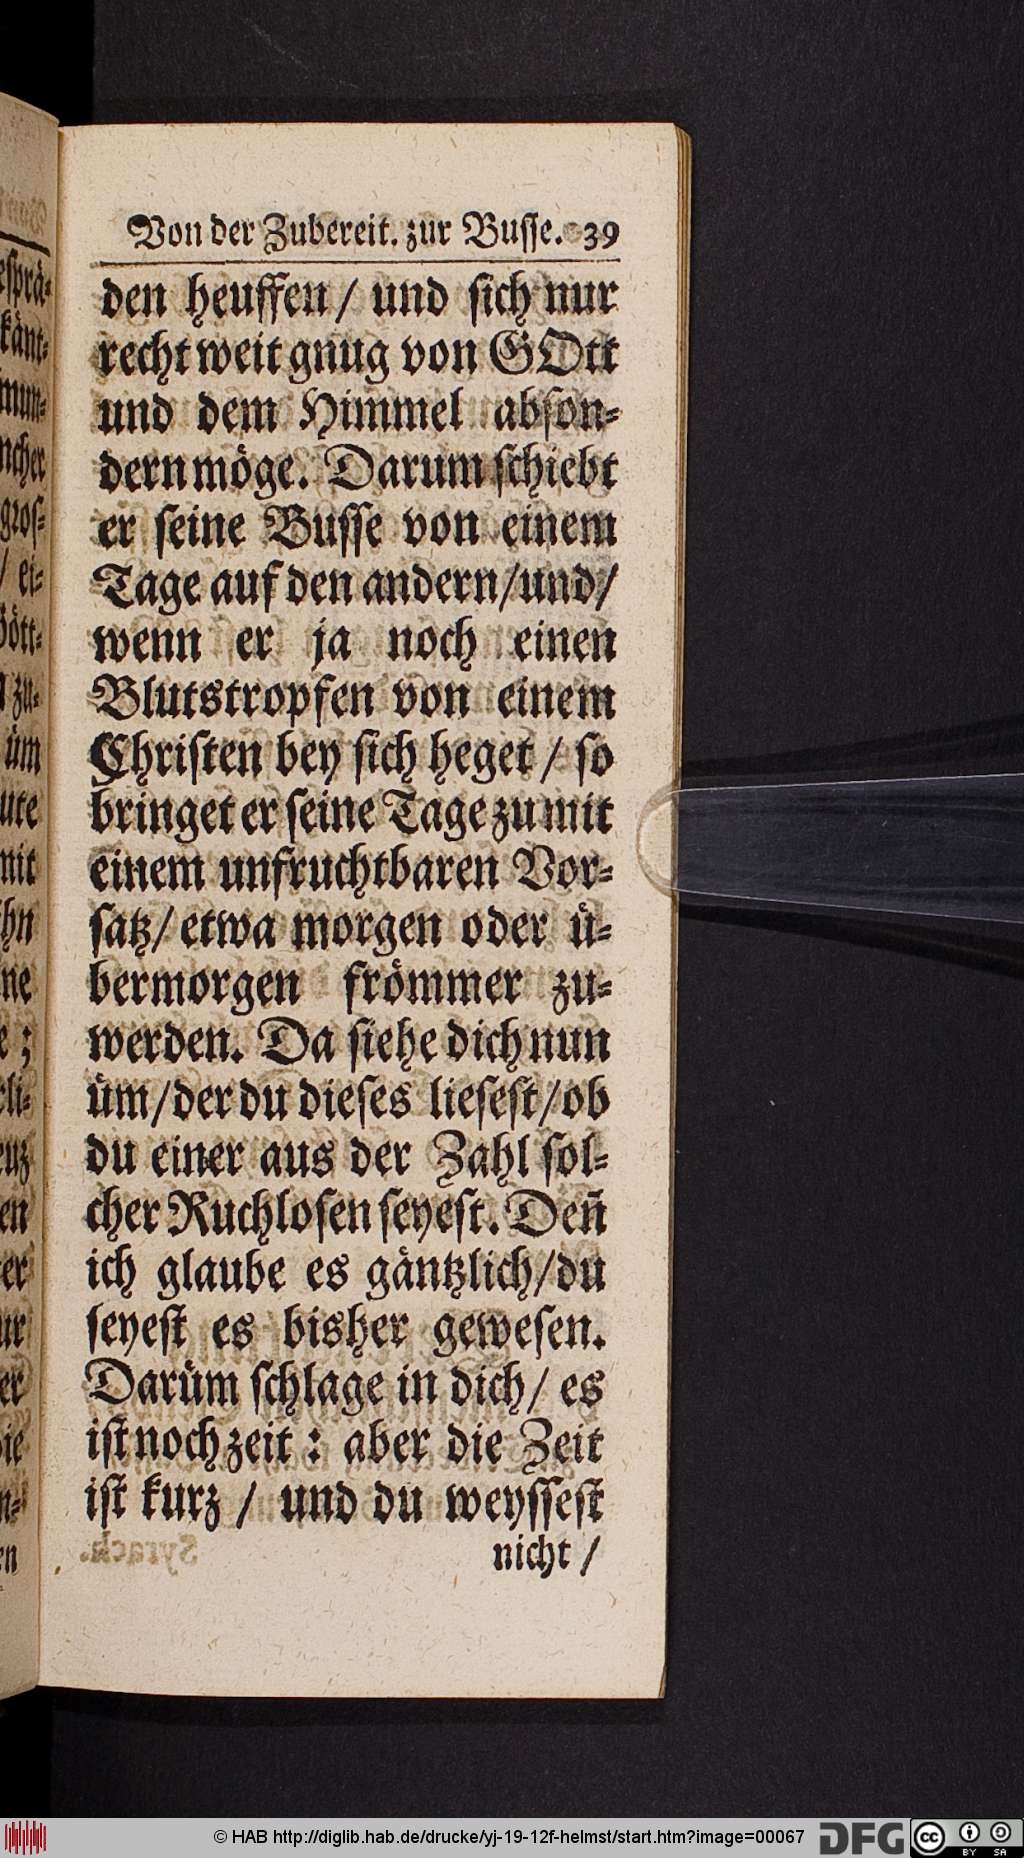 Von der Zubereit. zur Busse. 39
den heuffen / und sich nur
recht weit gnug von GOtt
und dem Himmel abson-
dern möge. Darum schiebt
er seine Busse von einem
Tage auf den andern/und/
wenn er ja noch einen
Blutstropfen von einem
Christen bey sich heget / so
bringet er seine Tage zu mit
einem unfruchtbaren Vor-
satz/ etwa morgen oder ü-
bermorgen frömmer zu-
werden. Da siehe dich nun
üm/der du dieses liesest/ob
du einer aus der Zahl sol-
cher Ruchlosen seyest. Den̄
ich glaube es gäntzlich/du
seyest es bisher gewesen.
Darüm schlage in dich/ es
ist noch zeit : aber die Zeit
ist kurz / und du weyssest
nicht /
© HAB http://diglib.hab.de/drucke/yj-19-12f-helmst/start.htm?image=00067
DFG
cc BY SA